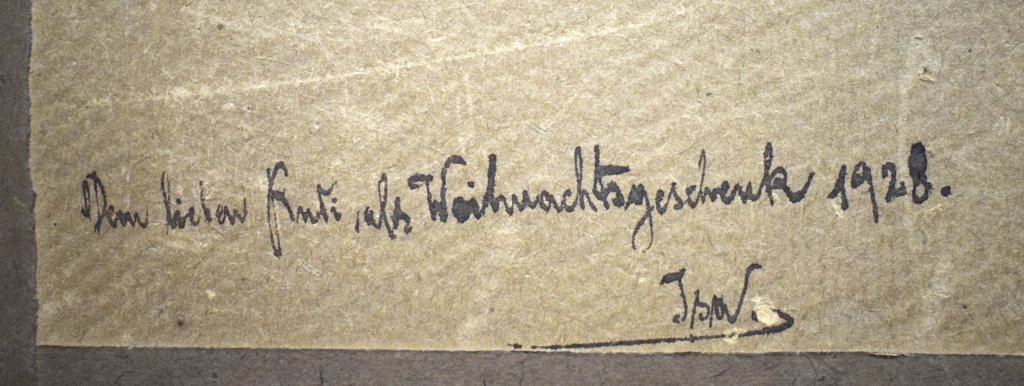 Dem lieben Rudi, als Weihnachtsgeschenk 1928.
Isa.